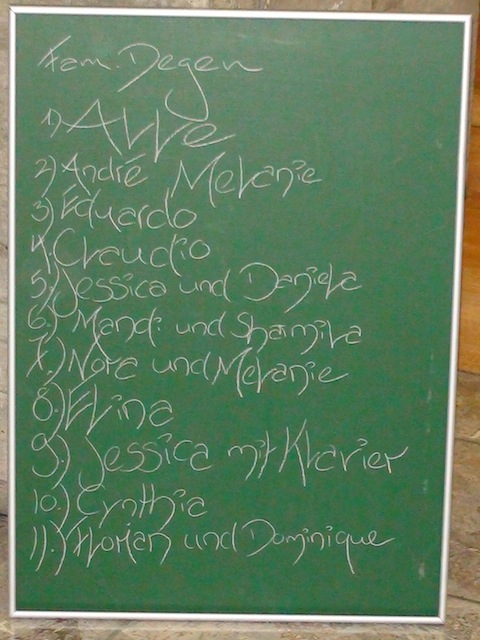 Fam. Degen
1) Alle
2) André Melanie
3) Eduardo
4. Claudio
5.) Jessica und Daniela
6.) Mandi und Sharmila
7.) Nora und Melanie
8.) Elina
9.) Jessica mit Klavier
10.) Cynthia
11.) Florian und Dominique